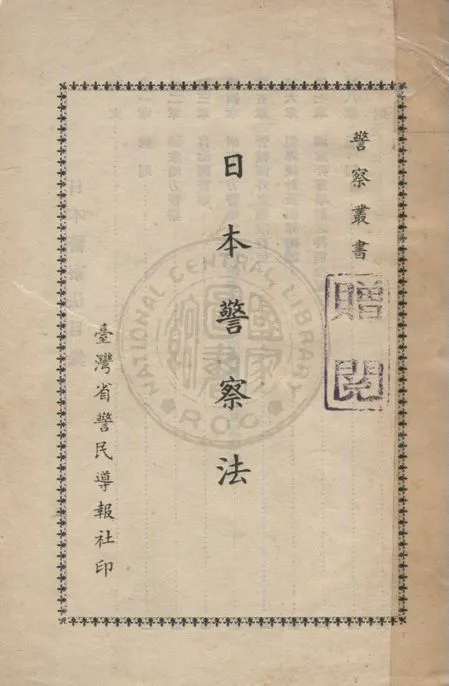 警察叢書
贈閱
日本警察法
臺灣省警民導報社印
NATIONAL CENTRAL LIBRARY
ROC